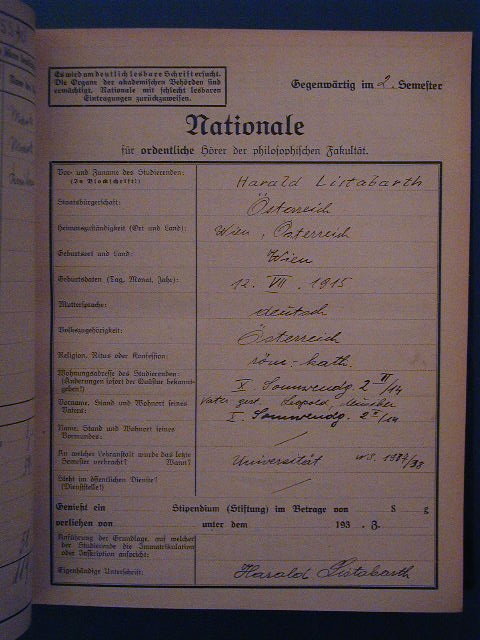 Es wird um deutlich lesbare Schrift ersucht.
Die Organe der akademischen Behörden sind
ermächtigt, Nationale mit schlecht lesbaren
Eintragungen zurückzuweisen.
Gegenwärtig im 2. Semester
Nationale
für ordentliche Hörer der philosophischen Fakultät.
Vor- und Zuname des Studierenden:
(In Blockschrift!)
Harald Listabarth
Staatsbürgerschaft:
Österreich
Heimatzuständigkeit (Ort und Land):
Wien, Österreich
Geburtsort und Land:
Wien
Geburtsdaten (Tag, Monat, Jahr):
12. VII. 1915
Muttersprache:
deutsch
Volkszugehörigkeit:
Österreich
Religion, Ritus oder Konfession:
röm.-kath.
Wohnungsadresse des Studierenden:
(Änderungen sofort der Quästur bekannt-
geben!)
X. Sonnwendg. 2 II/14
Vorname, Stand und Wohnort seines
Vaters:
Vater gest. Leopold,
X. Sonnwendg. 2 II/14
Name, Stand und Wohnort seines
Vormundes:
An welcher Lehranstalt wurde das letzte
Semester verbracht? Wann?
Universität W.S.
Steht im öffentlichen Dienste?
(Dienststelle!)
Genießt ein Stipendium (Stiftung) im Betrage von S g
verliehen von unter dem 193 , Z.
Anführung der Grundlage, auf welcher
der Studierende die Immatrikulation
oder Inskription anspricht:
Eigenhändige Unterschrift:
Harald Listabarth